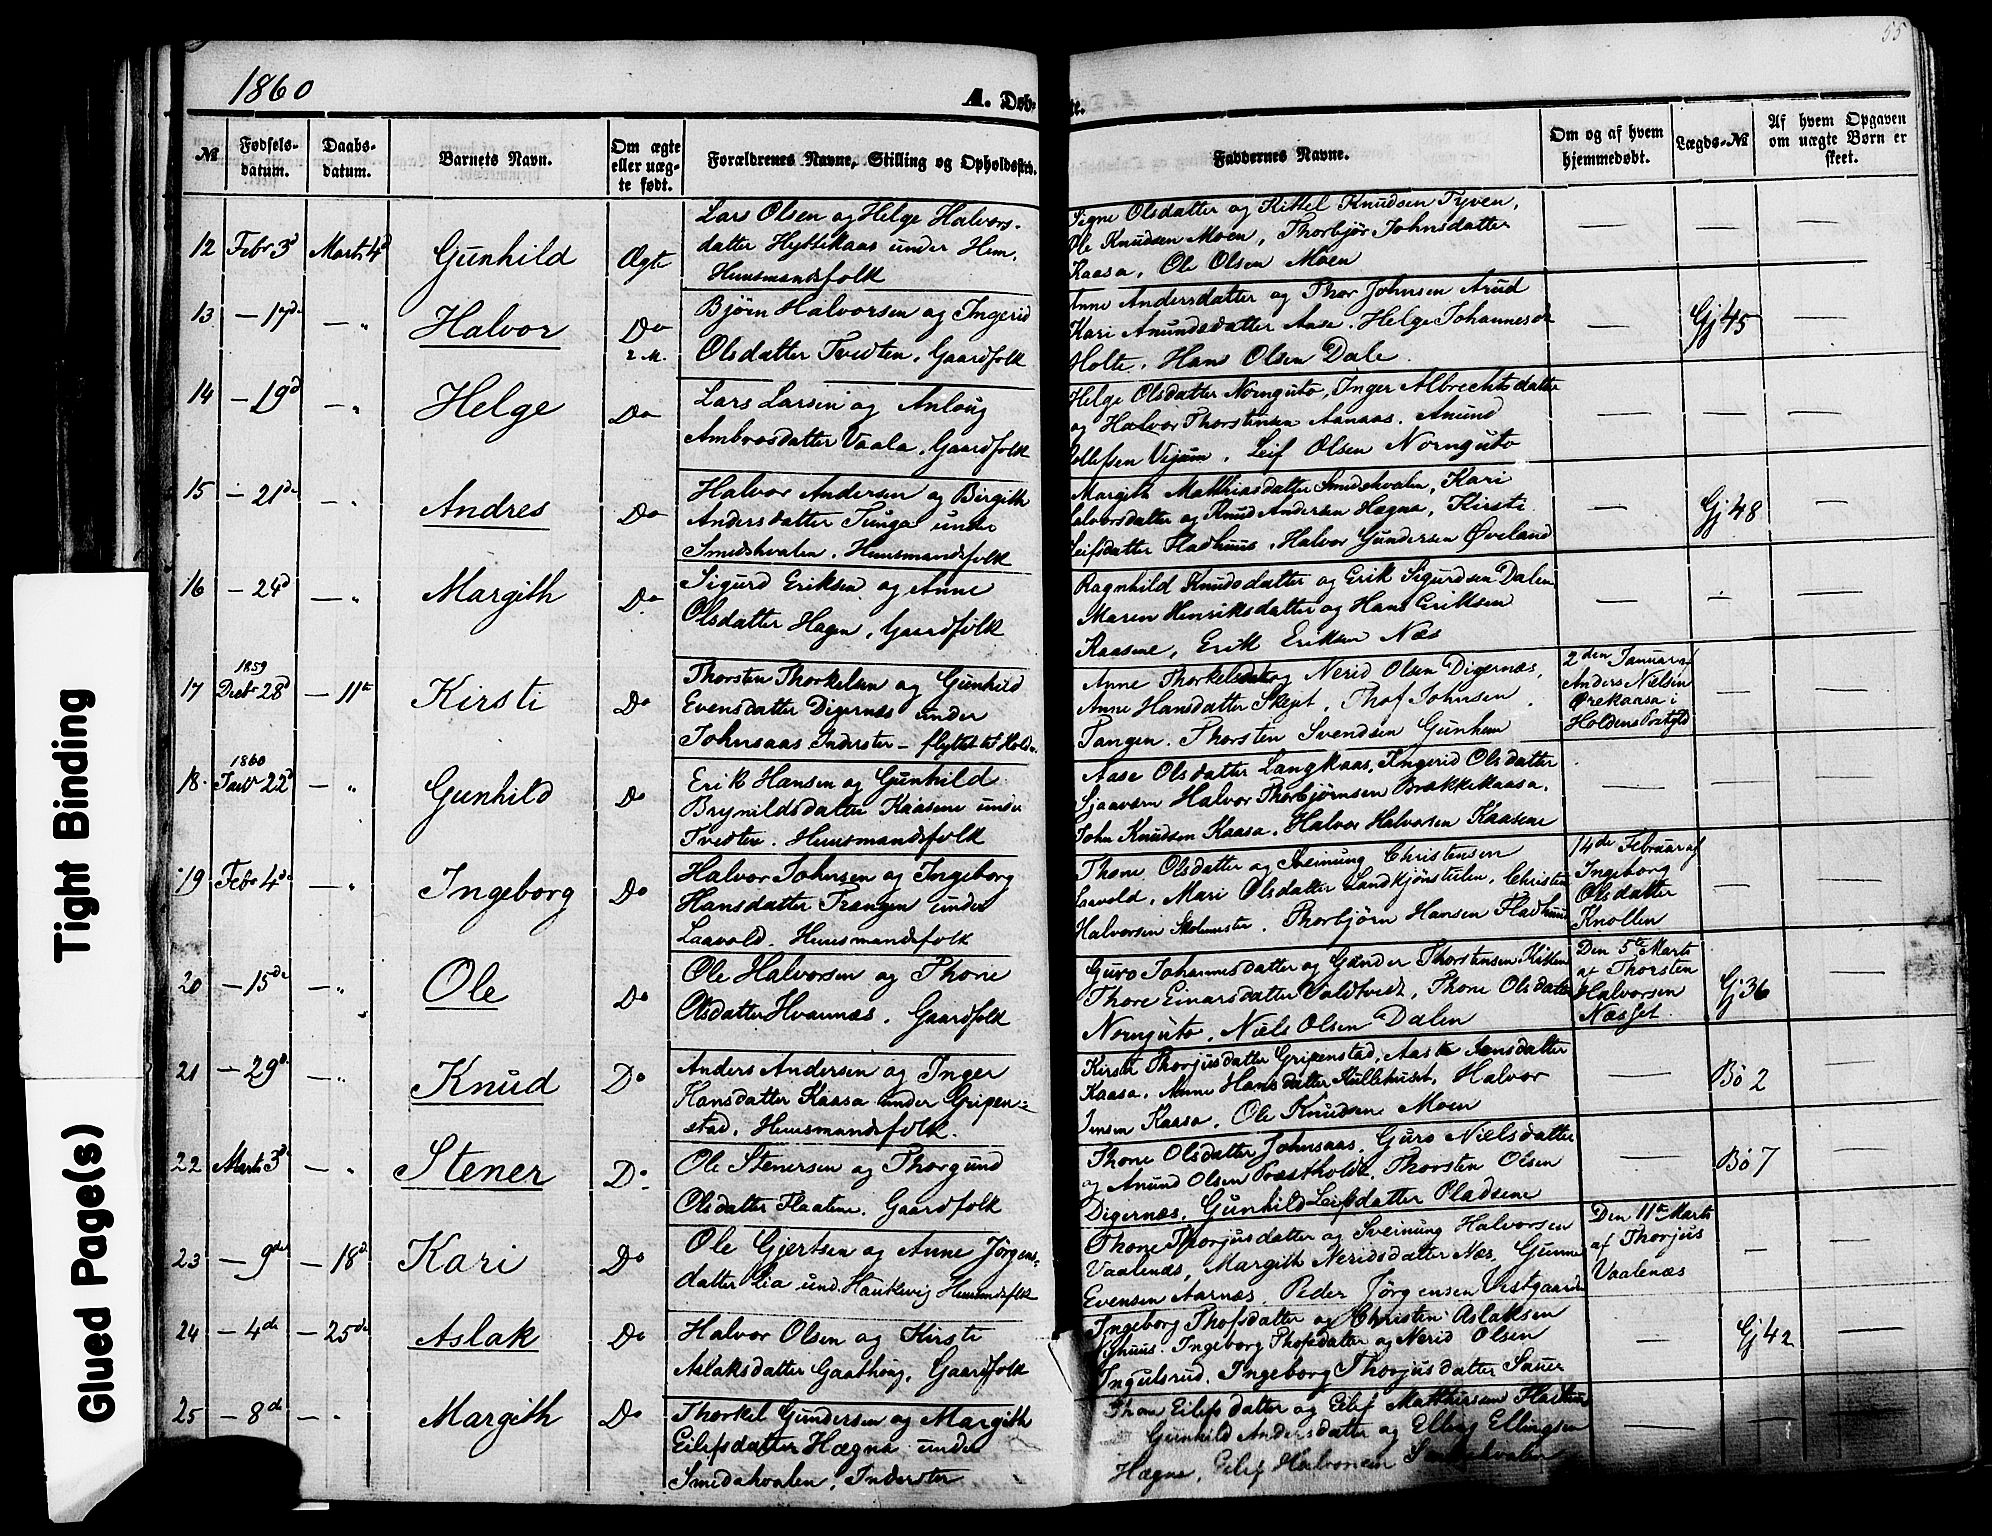 55
1860
A. Døb-
te.
№
Fødsels-
datum.
Daabs-
datum.
Barnets Navn.
Om ægte
eller uæg-
te født.
Forældrenes Navne, Stilling og Opholdssted.
Faddernes Navne.
Om og af hvem
hjemmedøbt.
Lægds-№
Af hvem Opgaven
om uægte Børn er
skeet.
12 Febr 3d Marts 4d Gunhild Ægte
Lars Olsen og Helge Halvors-
datter Hyttekaas under Hem,
Huusmandsfolk
Signe Olsdatter og Kittel Knudsen Tyven,
Ole Knudsen Moen, Thorbjør Johnsdatter
Kaasa, Ole Olsen Moen
— — —
13 — 17de — „ Halvor Do
2 M.
Bjørn Halvorsen og Ingerid
Olsdatter Tvedten, Gaardfolk
Anne Andersdatter og Thor Johnsen Arud
Kari Anundsdatter Aase, Helge Johannesdr
Holte, Hans Olsen Dale
— Gj 45 —
14 — 19d — „ Helge Do
Lars Larsen og Anloug
Ambrosdatter Vaala, Gaardfolk
Helge Olsdatter Nornguto, Inger Albrechtsdatter
og Halvor Thorstensen Aanaas, Anund
Vijum, Leif Olsen Nornguto
— — —
15 — 21de — „ Andres Do
Halvor Andersen og Birgith
Andersdatter Tunga under
Smedshvalen, Huusmandsfolk
Margith Matthiasdatter Smedshvalen, Kari
Halvorsdatter og Knud Andersen Hægna, Kirsti
Leifsdatter Fladhuus, Halvor Gundersen Øveland
— Gj 48 —
16 — 24d — „ Margith Do
Sigurd Eriksen og Anne
Olsdatter Hagen, Gaardfolk
Ragnhild Knudsdatter og Erik Sigurdsen Dalen
Maren Henriksdatter og Hans Eriksen
Kaasene, Erik Eriksen Næs
— — —
1859
17 Decbr 28d — 11te Kirsti Do
Thorsten Thorkelsen og Gunhild
Evensdatter Digernæs under
Johnsaas Inderster – flyttet til Holden
Anne Thorkelsdatter og Nerid Olsen Digernæs,
Anne Hansdatter Skejet, Thof Johnsen
Tangen, Thorsten Svendsen Gunhem
2den Januar af
Anders Nielsen
Ørekaasa i
Holdens Prstgjld
— —
1860
18. Janr 22d — „ Gunhild Do
Erik Hansen og Gunhild
Brynildsdatter Kaasene under
Tvedten. Huusmandsfolk
Aase Olsdatter Langkaas, Ingerid Olsdatter
Sjaavorn Halvor Thorbjørnsen Brækkekaasa,
John Knudsen Kaasa, Halvor Halvorsen Kaasene
— — —
19 Febr 4de — „ Ingeborg Do
Halvor Johnsen og Ingeborg
Hansdatter Trangen under
Laavold. Huusmandsfolk
Thone Olsdatter og Sveinung Christensen
Laavold, Mari Olsdatter Christen
Halvorsen Skolemester, Thorbjørn Hansen Fladhuus
14de Februar af
Ingeborg
Olsdatter
Knollen
— —
20 — 15de — „ Ole Do
Ole Halvorsen og Thone
Olsdatter Hvannæs, Gaardfolk
Guro Johannesdatter og Gunder Thorstensen
Thore Einarsdatter Valdtvedt, Thone Olsdatter
Nornguto, Niels Olsen Dalen
Den 5te Marts
af Thorsten
Halvorsen
Næsset
Gj 36 —
21 — 29de — „ Knud Do
Anders Andersen og Inger
Hansdatter Kaasa under Gripen-
stad, Huusmandsfolk.
Kirsti Thorjusdatter Gripenstad, Aaste Jensdatter
Kaasa, Anne Hansdatter Kullehuset, Halvor
Jensen Kaasa, Ole Knudsen Moen
— Bø 2 —
22 Marts 3d — „ Stener Do
Ole Stenersen og Thorgund
Olsdatter Flaatene, Gaardfolk
Thone Olsdatter Johnsaas, Guro Nielsdatter
og Anund Olsen Præstholdt, Thorsten Olsen
Digernæs, Gunhild Leifsdatter Pladsene
— Bø 7 —
23 — 9de — 18de Kari Do
Ole Gjertsen og Anne Jørgens-
datter Lia und. Haukevig Huusmdsfolk
Thone Thorjusdatter og Sveinung Halvorsen
Vaalenæs, Margith Neridsdatter Næs, Gunne
Evensen Aarnæs, Peder Jørgensen Vestgaarden
Den 11te Marts
af Thorjus
Vaalenæs
— —
24 — 4de — 25de Aslak Do
Halvor Olsen og Kirsti
Aslaksdatter Gaathoug, Gaardfolk
Ingeborg Thofsdatter og Christen Aslaksen
Nyhuus. Ingeborg Thofsdatter og Nerid Olsen
Ingulsrud, Ingeborg Thorjusdatter Sauer
— Gj 42 —
25 — 8de — „ Margith Do
Thorkel Gundersen og Margith
Eilefsdatter Hægna under
Smedshvalen, Inderster
Thone Eilefsdatter og Eilef Matthiesen Fladhuus
Gunhild Andersdatter og Elling Ellingsen
Hægna, Eilef Halvorsen Smedshvalen
— — —
Tight Binding
Glued Page(s)